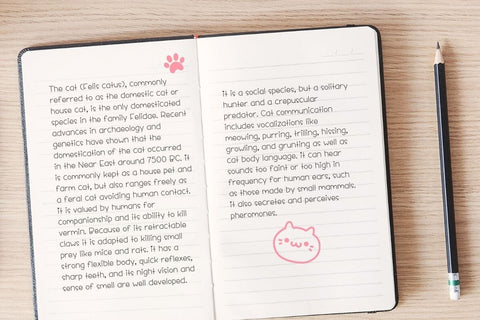 The cat (Felis catus), commonly
referred to as the domestic cat or
house cat, is the only domesticated
species in the family Felidae. Recent
advances in archaeology and
genetics have shown that the
domestication of the cat occurred
in the Near East around 7500 BC. It
is commonly kept as a house pet and
farm cat, but also ranges freely as
a feral cat avoiding human contact.
It is valued by humans for
companionship and its ability to kill
vermin. Because of its retractable
claws it is adapted to killing small
prey like mice and rats. It has a
strong flexible body, quick reflexes,
sharp teeth, and its night vision and
sense of smell are well developed.
It is a social species, but a solitary
hunter and a crepuscular
predator. Cat communication
includes vocalizations like
meowing, purring, trilling, hissing,
growling, and grunting as well as
cat body language. It can hear
sounds too faint or too high in
frequency for human ears, such
as those made by small mammals.
It also secretes and perceives
pheromones.